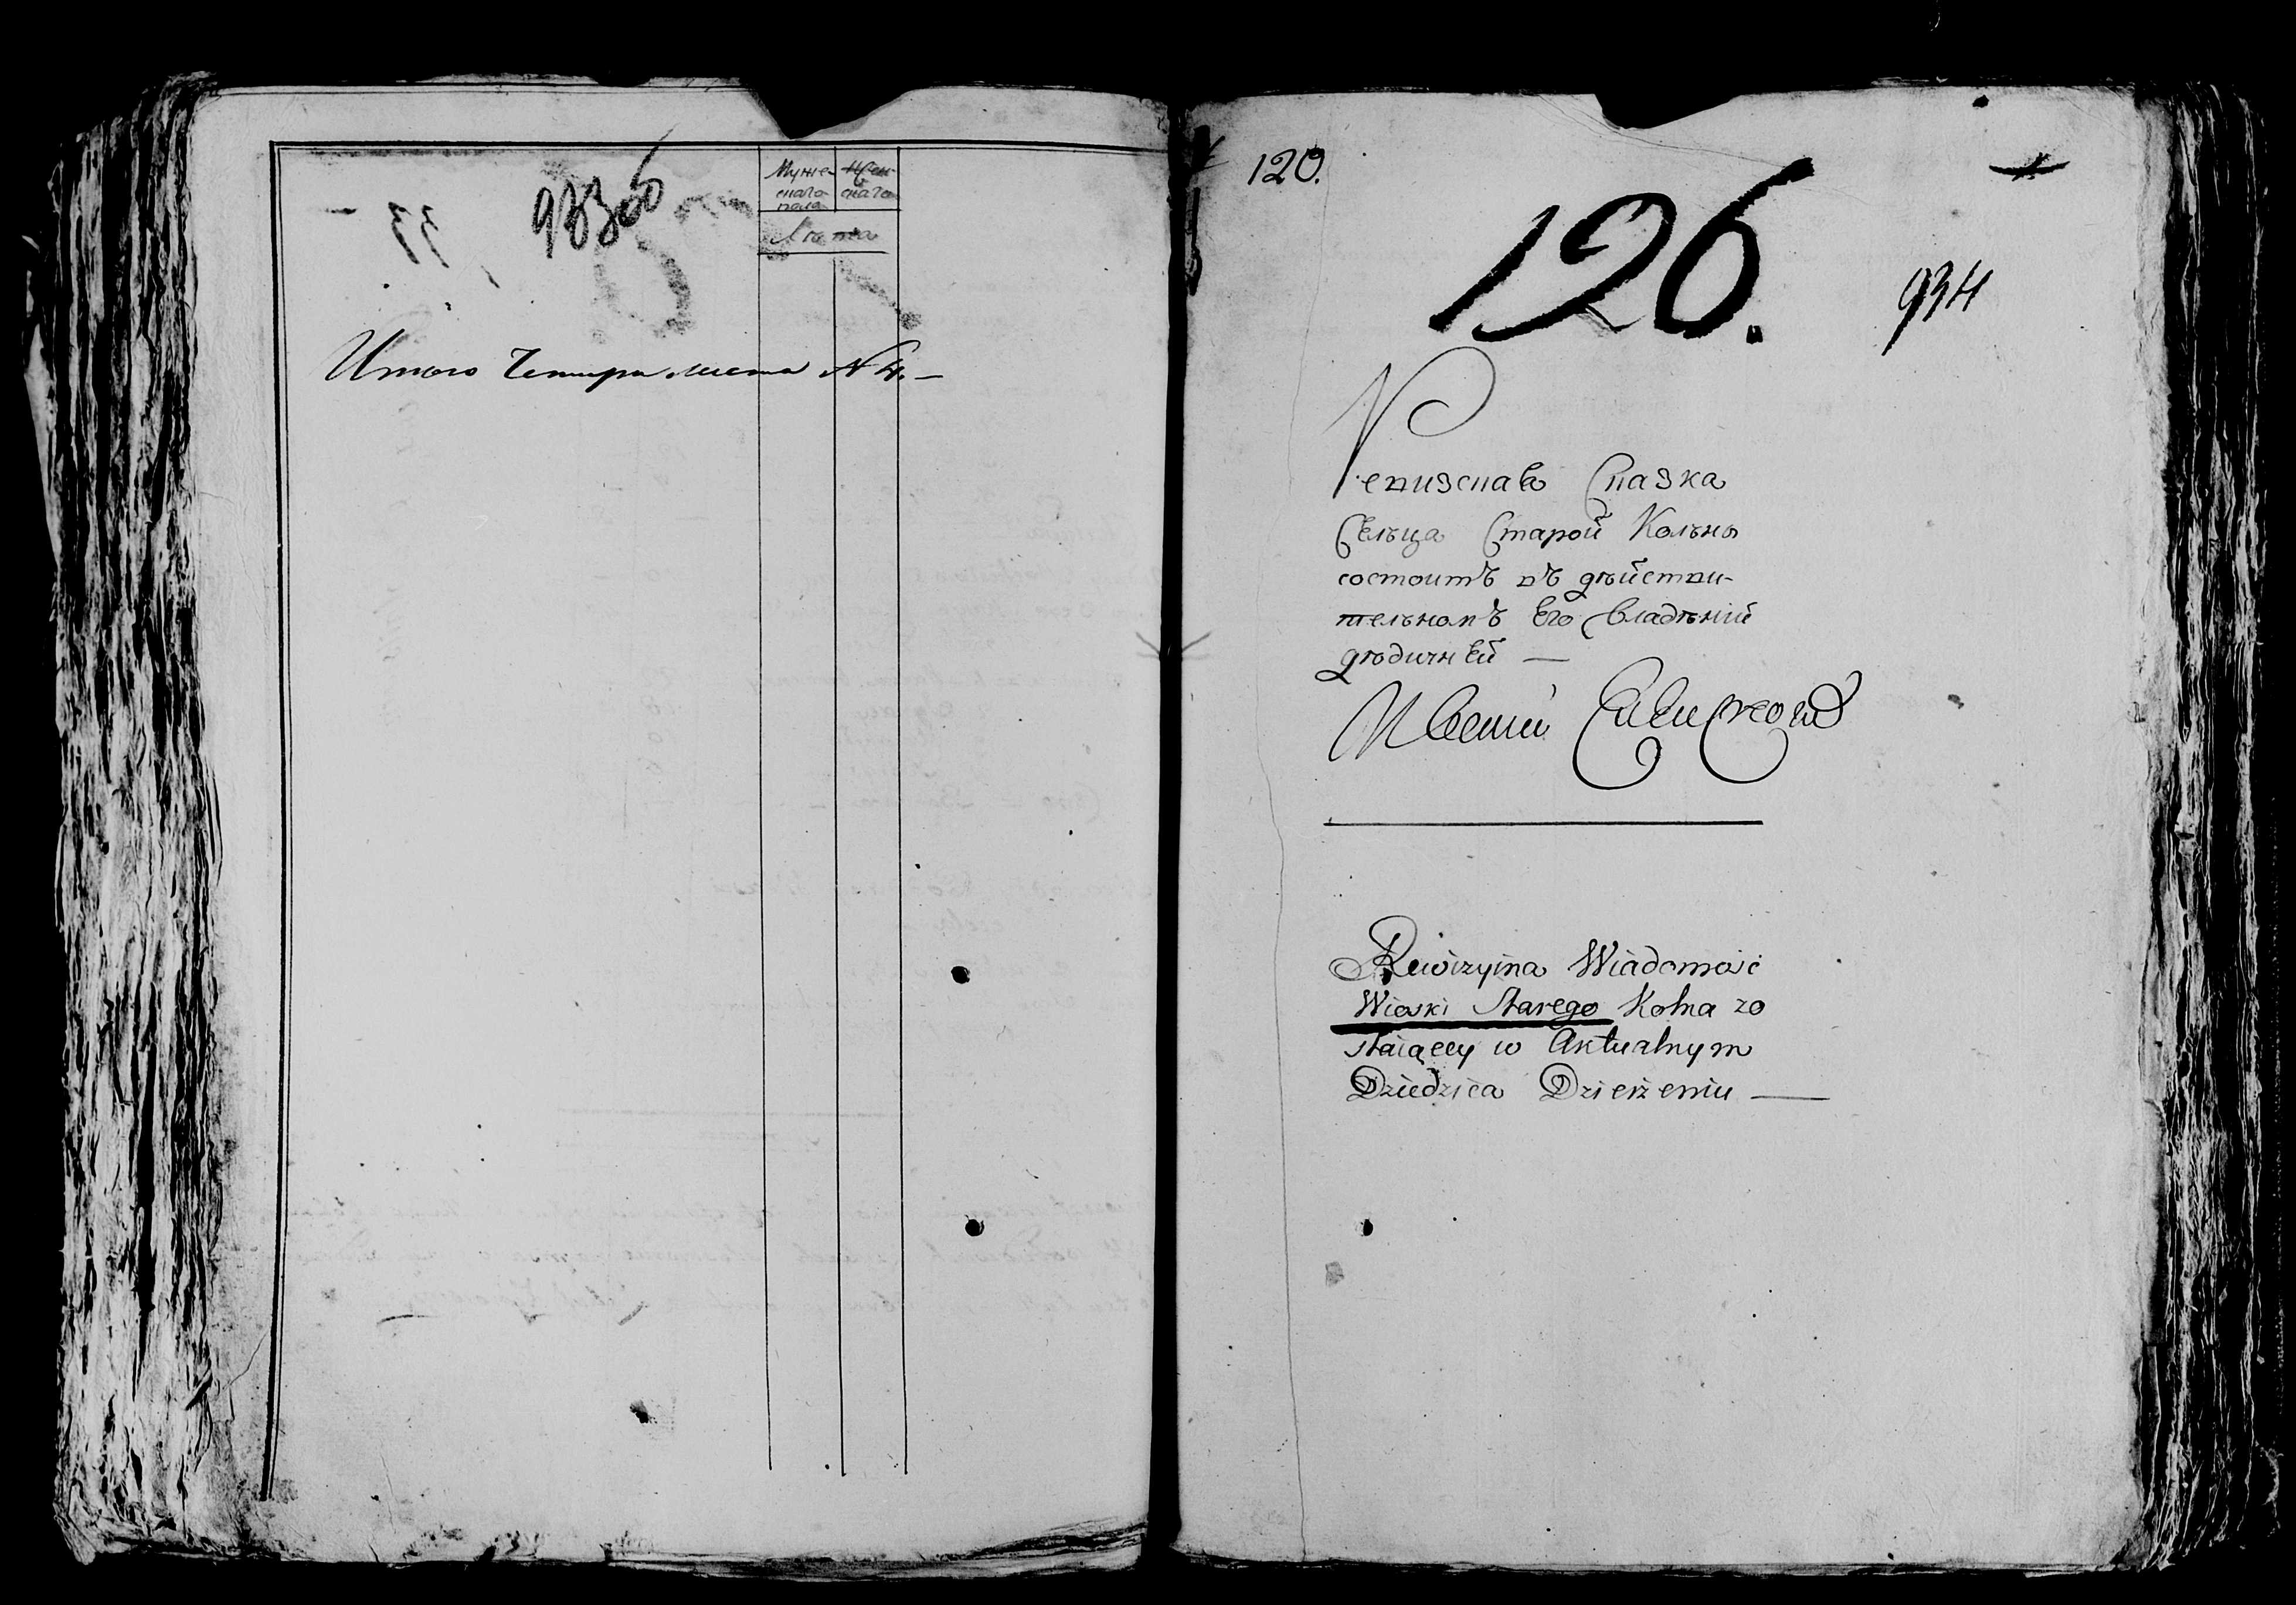 933об
Муже-
скаго
пола
Жен-
скаго
Лѣта
Итого Четыри листа N 4. —
120.
126.
934
Ревизская Сказка
Сельца Старой Кольны
состоитъ въ дѣйстви-
тельномъ Его Владѣнїи
дѣдичней —
Rewizyina Wiadomość
Wioski Starego Kolna zo
staiącey w Aktualnym
Dziedzica Dzierżeniu —